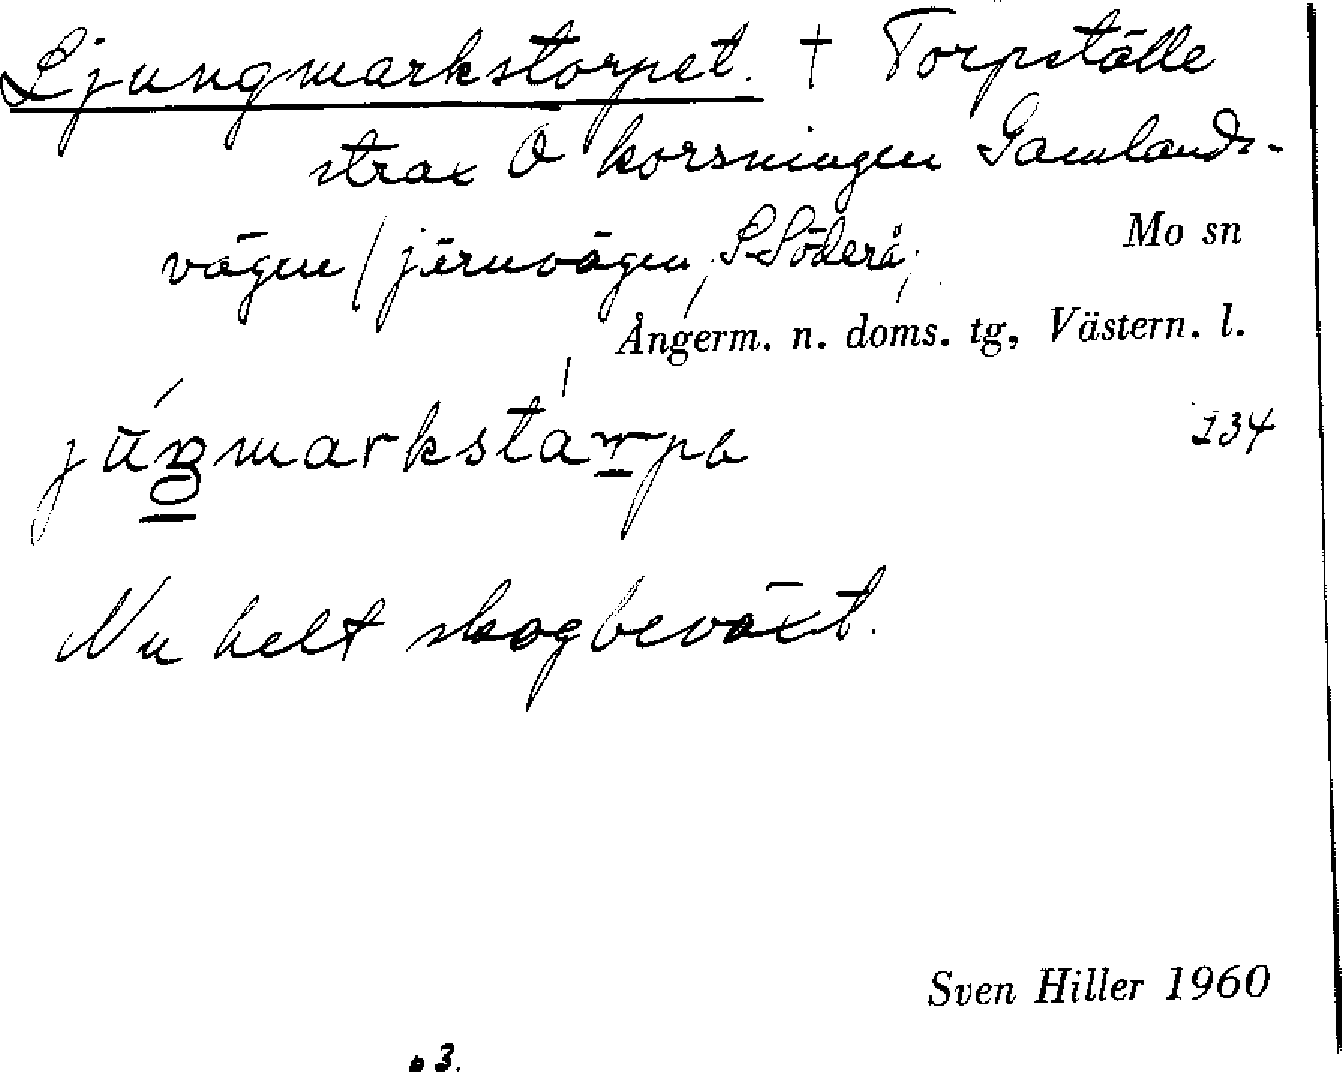 Ljungmarkstorpet. † Torpställe
strax Ö korsningen Gamlands-
vägen / järnvägen, S Söderå,
Mo sn
Ångerm. n. doms. tg, Västern. l.
134
Nu helt skogbeväxt.
Sven Hiller 1960
3.